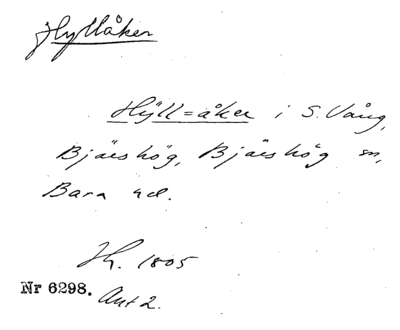 Hyllåker
Hÿll=åker i S. Vång,
Bjäreshög, Bjäreshög sn,
Bara hd.
Jh. 1805
Nr 6298. Akt 2.